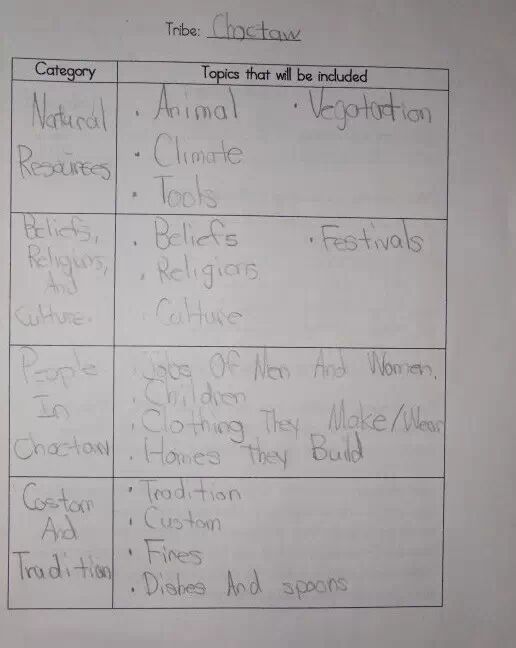 Tribe: Choctaw
Category
Topics that will be included
Natural
Resources
· Animal · Vegatation
· Climate
· Tools
Beliefs,
Religiuns,
And
Culture.
· Beliefs · Festivals
· Religions
· Culture
People
In
Choctaw
· Jobs Of Men And Women.
· Children
· Clothing They Make/Wear
· Homes They Build
Costom
And
Tradition
· Tradition
· Custom
· Fires
· Dishes And spoons